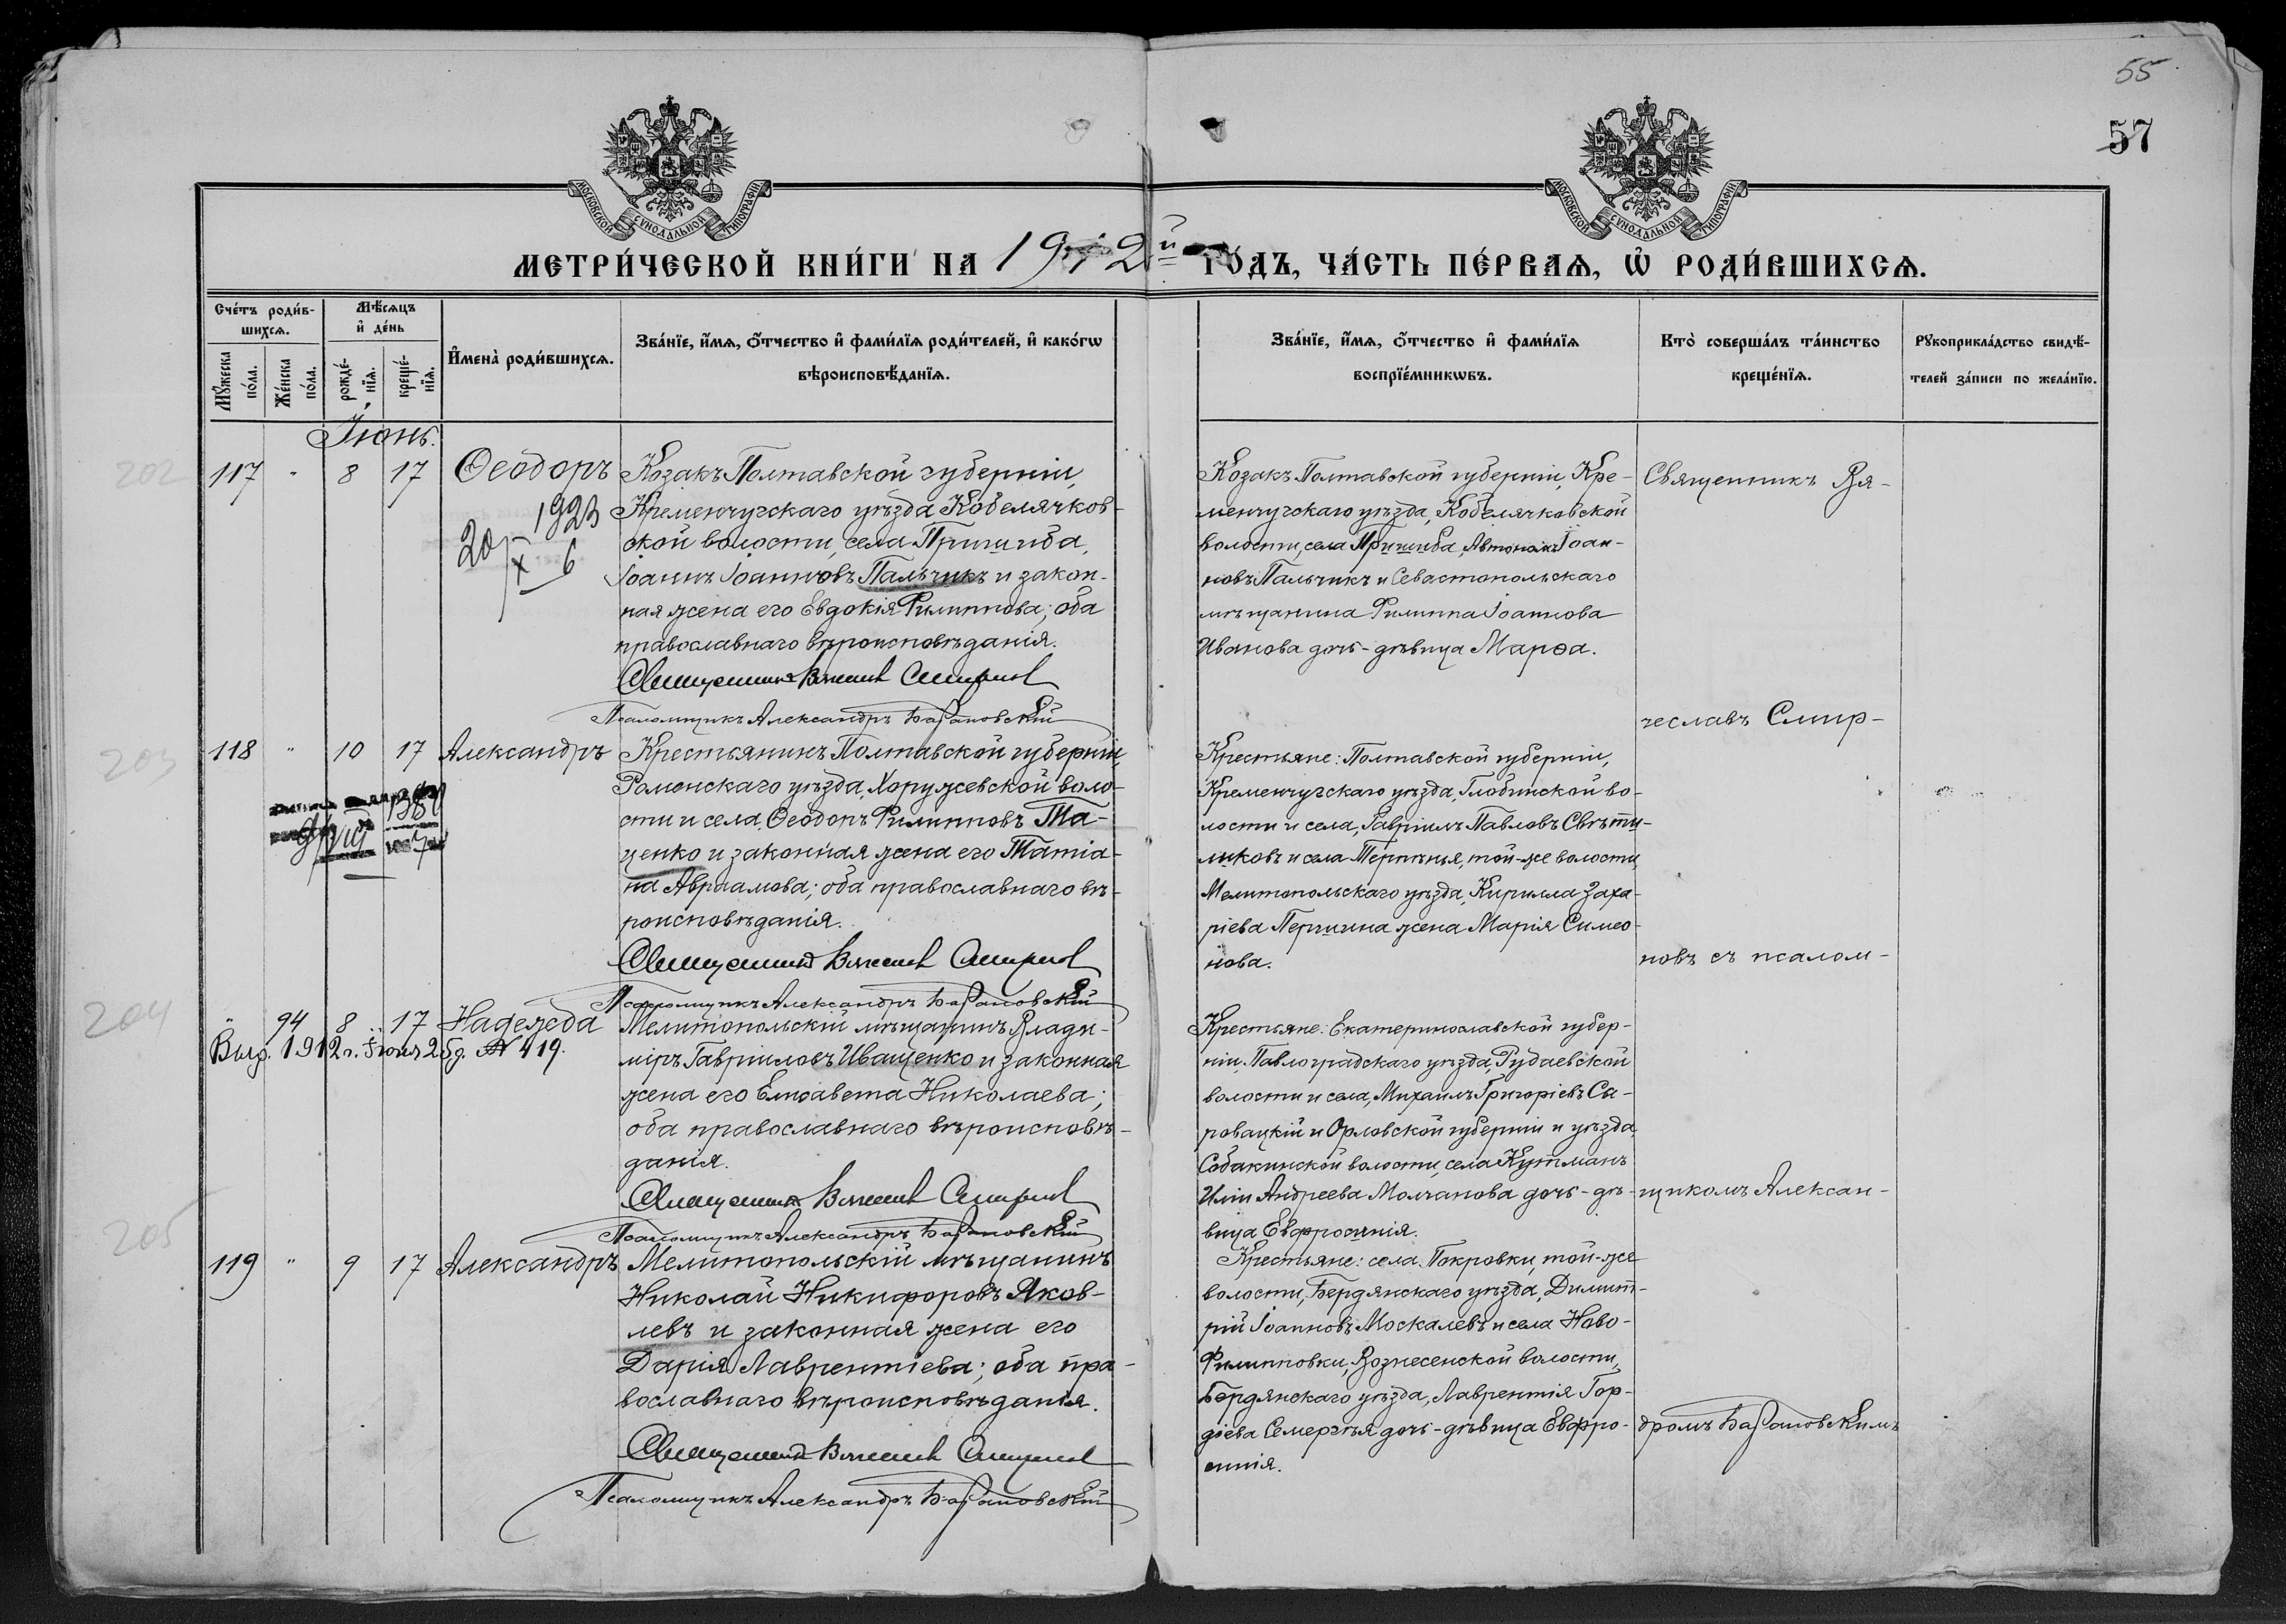 55
57
МОСКОВСКОЙ СУНОДАЛЬНОЙ ТИПОГРАФІИ
МОСКОВСКОЙ СУНОДАЛЬНОЙ ТИПОГРАФІИ
МЕТРИ́ЧЕСКОЙ КНИ́ГИ НА 1912й ГО́ДЪ, ЧА́СТЬ ПЕ́РВАѦ, Ѡ҆ РОДИ́ВШИХСѦ.
Сче́тъ роди́в-
шихсѧ.
Мꙋ́жеска по́ла.
Же́нска по́ла.
Мѣ́сѧцъ
и҆ де́нь
рожде́-
нїѧ.
креще́-
нїѧ.
И҆мена̀ роди́вшихсѧ.
Зва́нїе, и҆́мѧ, ѻ҆́тчество и҆ фами́лїѧ роди́телей, и҆ како́гѡ
вѣроисповѣ́данїѧ.
Зва́нїе, и҆́мѧ, ѻ҆́тчество и҆ фами́лїѧ
воспрїе́мникѡвъ.
Кто̀ соверша́лъ та́инство
креще́нїѧ.
Рꙋкоприкла́дство свидѣ́-
телей за́писи по жела́нїю.
Іюнь.
202
117 " 8 17 Ѳеодоръ
1923
20/X 6
Козакъ Полтавской губерніи,
Кременчугскаго уѣзда, Кобелячков-
ской волости, села Пришиба,
Іоаннъ Іоанновъ Пальчикъ и закон-
ная жена его Евдокія Филиппова; оба
православнаго вѣроисповѣданія.
Священникъ Вячеслав Смирнов
Псаломщикъ Александръ Барановскій
Козакъ Полтавской губерніи, Кре-
менчугскаго уѣзда, Кобелячковской
волости, села Пришиба, Автономъ Іоан-
новъ Пальчикъ и Севастопольскаго
мѣщанина Филиппа Іоаннова
Иванова дочь-дѣвица Марѳа.
Священникъ Вя-
чеславъ Смир-
203
118 " 10 17 Александръ
Крестьянинъ Полтавской губерніи,
Роменскаго уѣзда, Хоружевской воло-
сти и села, Ѳеодоръ Филипповъ Та-
ценко и законная жена его Татіа-
на Авраамова; оба православнаго вѣ-
роисповѣданія.
Священникъ Вячеслав Смирнов
Псаломщикъ Александръ Барановскій
Крестьяне: Полтавской губерніи,
Кременчугскаго уѣзда, Глобинской во-
лости и села, Гавріилъ Павловъ Свѣти-
ликовъ и села Терпѣнья, той-же волости,
Мелитопольскаго уѣзда, Кирилла Заха-
ріева Першина жена Марія Симео-
нова.
новъ съ псалом-
204
" 94 8 17 Надежда
Выд. 1912 г. Іюня 25 д. № 419.
Мелитопольскій мѣщанинъ Влади-
міръ Гавріиловъ Иващенко и законная
жена его Елисавета Николаева;
оба православнаго вѣроисповѣ-
данія.
Священникъ Вячеслав Смирнов
Псаломщикъ Александръ Барановскій
Крестьяне: Екатеринославской губер-
ніи, Павлоградскаго уѣзда, Рудаевской
волости и села, Михаилъ Григоріевъ Са-
ровацкій и Орловской губерніи и уѣзда,
Собакинской волости, села Кутманъ
Иліи Андреева Молчанова дочь-дѣ-
вица Евфросинія.
щикомъ Алексан-
205
119 " 9 17 Александръ
Мелитопольскій мѣщанинъ
Николай Никифоровъ Яков-
левъ и законная жена его
Дарія Лаврентіева; оба пра-
вославнаго вѣроисповѣданія.
Священникъ Вячеслав Смирнов
Псаломщикъ Александръ Барановскій
Крестьяне: села Покровки, той-же
волости, Бердянскаго уѣзда, Димит-
рій Іоанновъ Москалевъ и села Ново-
Филипповки, Вознесенской волости,
Бердянскаго уѣзда, Лаврентія Гор-
діева Семергѣя дочь-дѣвица Евфро-
синія.
дромъ Барановскимъ